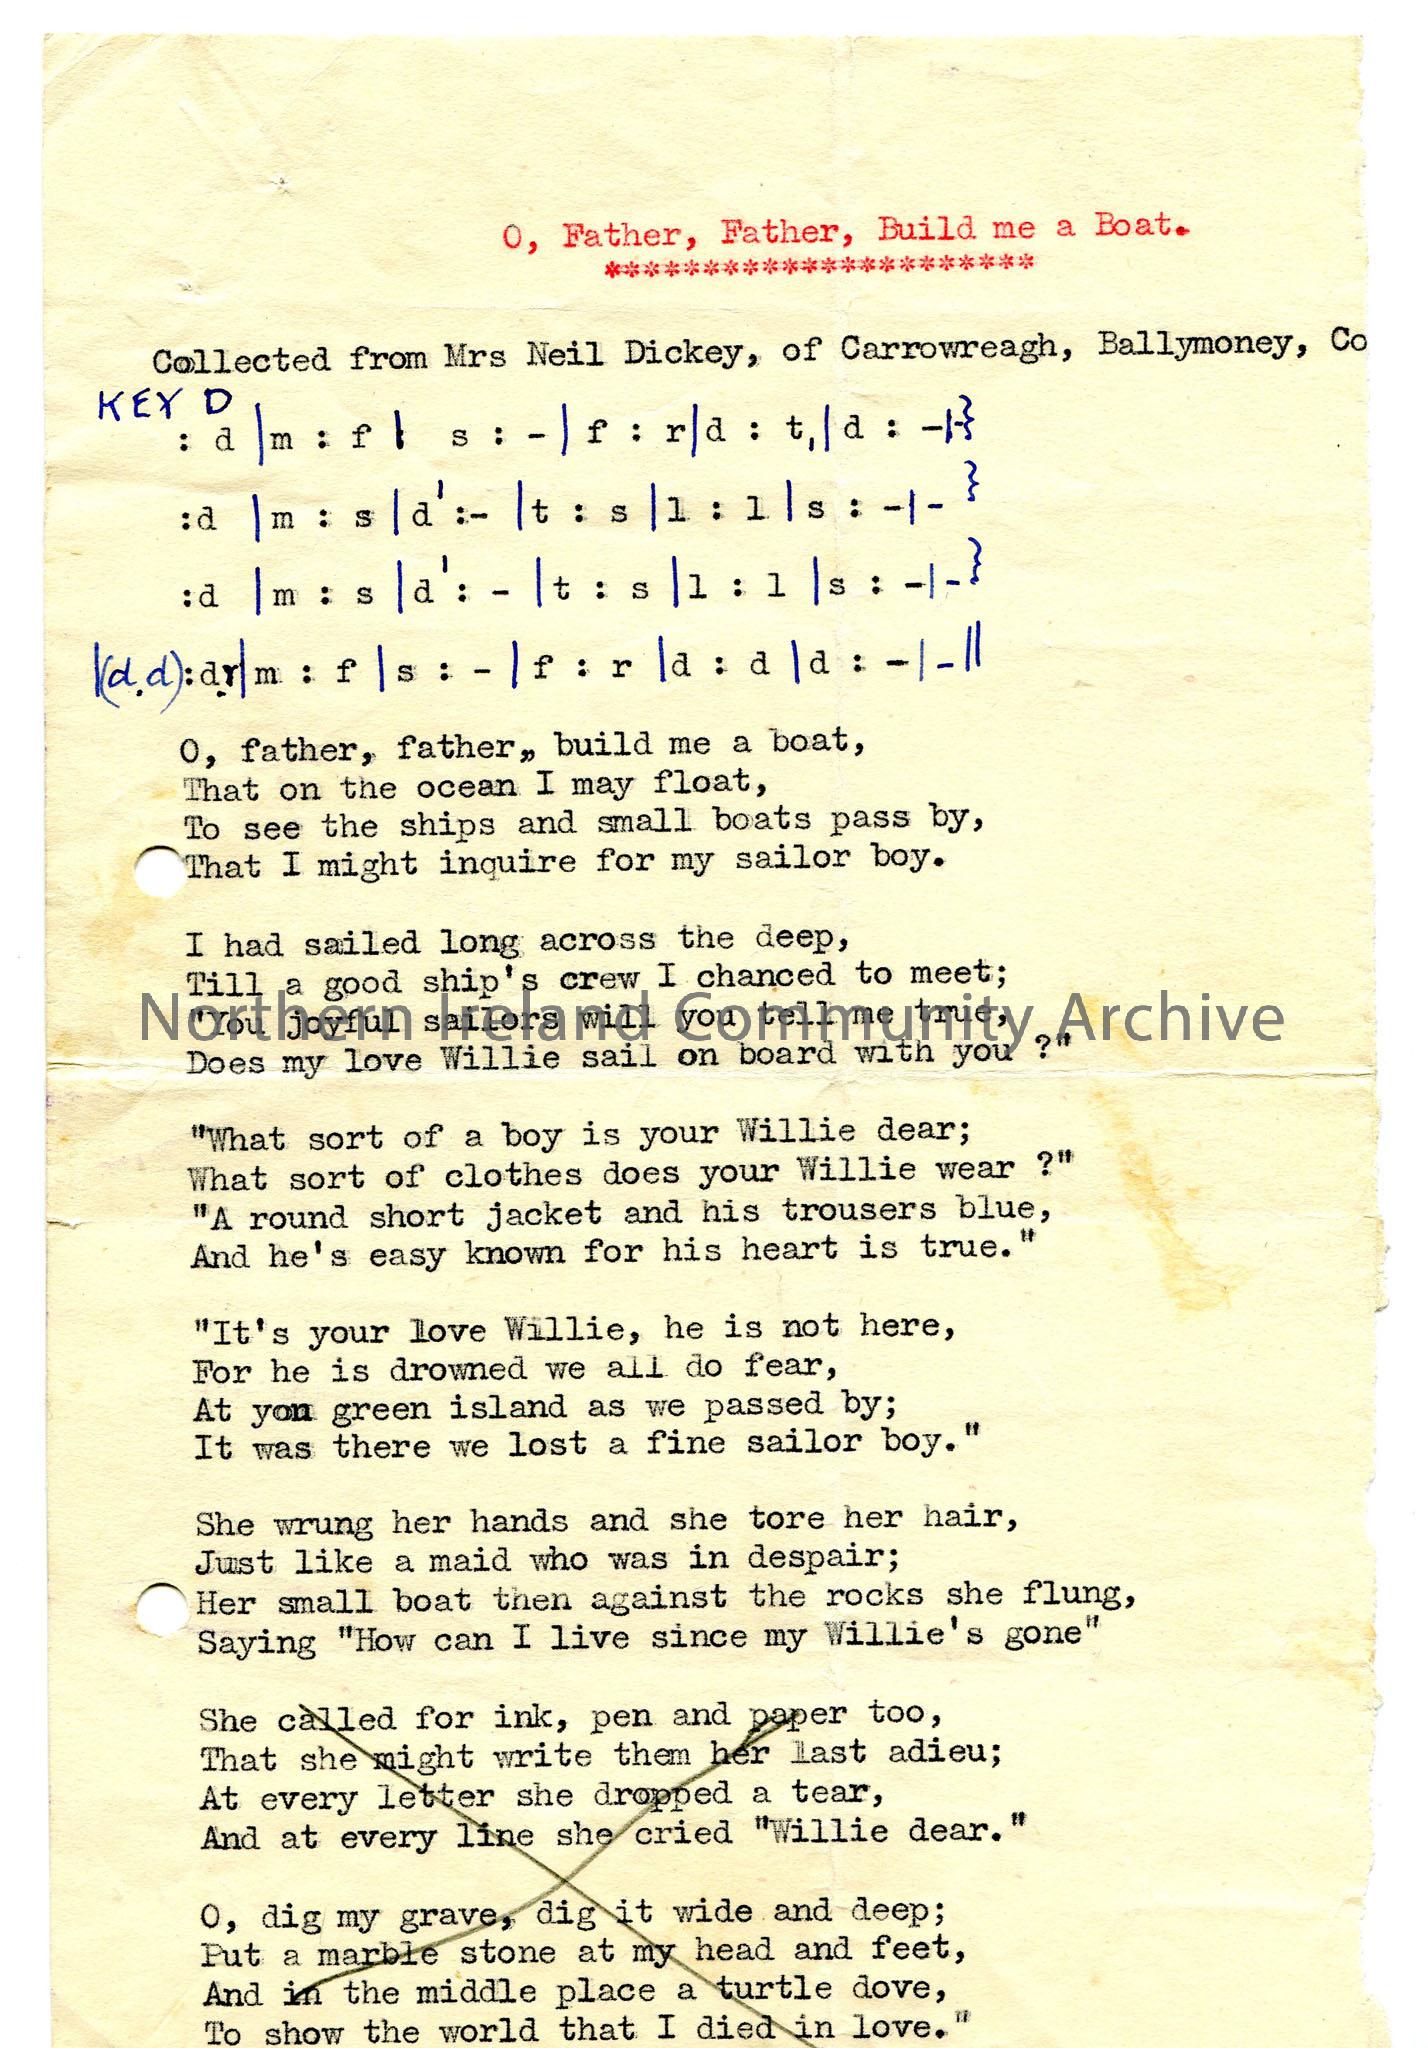 O, Father, Father, Build me a Boat.
**********************
Collected from Mrs Neil Dickey, of Carrowreagh, Ballymoney, Co
KEY D
: d |m : f | s : - | f : r|d : t,| d : -|-}
:d |m : s |d' :- |t : s |l : l |s : -|- }
:d |m : s |d' : - |t : s |l : l |s : -|-}
|(d.d):d.r|m : f |s : - |f : r |d : d |d : -|-||
O, father, father,, build me a boat,
That on the ocean I may float,
To see the ships and small boats pass by,
That I might inquire for my sailor boy.
I had sailed long across the deep,
Till a good ship's crew I chanced to meet;
"You joyful sailors will you tell me true,
Northern Ireland Community Archive
Does my love Willie sail on board with you ?"
"What sort of a boy is your Willie dear;
What sort of clothes does your Willie wear ?"
"A round short jacket and his trousers blue,
And he's easy known for his heart is true."
"It's your love Willie, he is not here,
For he is drowned we all do fear,
At yon green island as we passed by;
It was there we lost a fine sailor boy."
She wrung her hands and she tore her hair,
Just like a maid who was in despair;
Her small boat then against the rocks she flung,
Saying "How can I live since my Willie's gone"
She called for ink, pen and paper too,
That she might write them her last adieu;
At every letter she dropped a tear,
And at every line she cried "Willie dear."
O, dig my grave, dig it wide and deep;
Put a marble stone at my head and feet,
And in the middle place a turtle dove,
To show the world that I died in love."